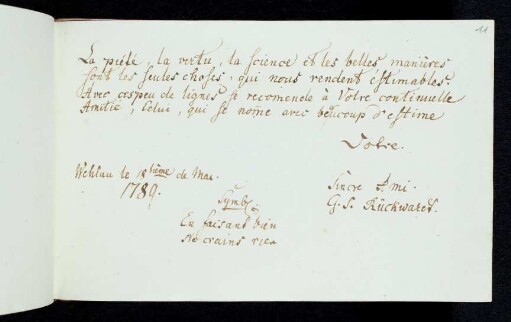 11
La piété, la vertu, la science et les belles manières
sont les seules choses, qui nous rendent éstimables.
Avec ces peu de lignes se recomende à Votre continuelle
Amitié, Celui, qui se nome avec beaucoup d'estime
Votre.
Wehlau le 18tieme de Mai.
1789.
Sincre Ami.
G. S. Rückwardt.
Symb.
En faisant bien
Ne crains rien